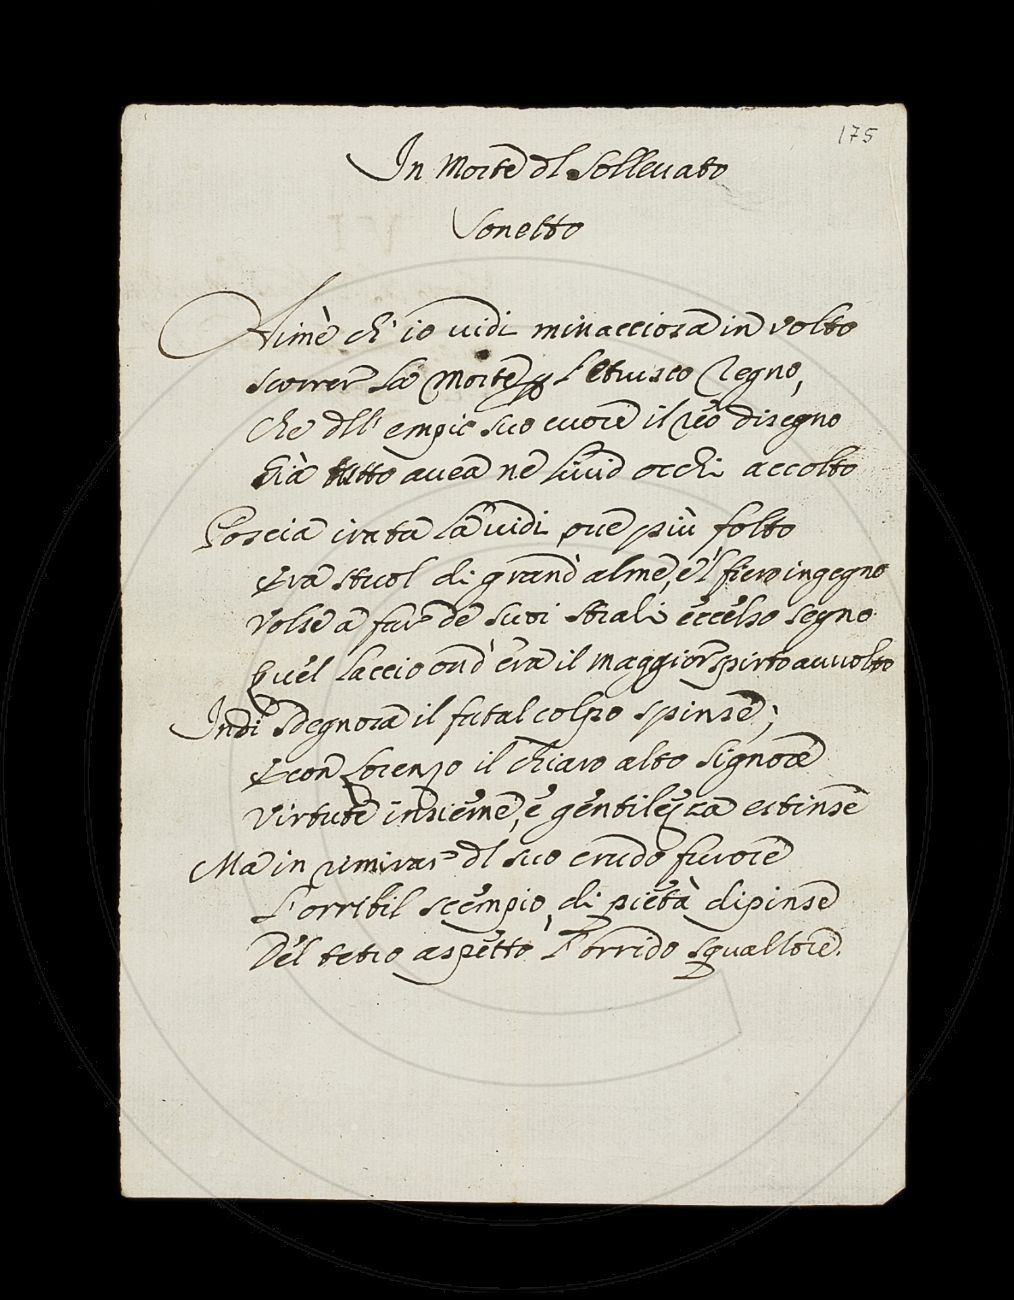 175
In Morte dl Sollevato
Sonetto
Aimè ch' io vidi minacciosa in volto
Scorrer la Morte p l'Etrusco Regno,
Che dll' empio suo cuore il reo disegno
Già tutto avea ne lividi occhi accolto
Poscia irata la vidi, ove più folto
Era stuol di grand' alme, e'l fiero ingegno
Volse a far de suoi strali eccelso segno
Quel laccio ond' era il maggior spirto avvolto
Indi sdegnosa il fatal colpo spinse;
E con Lorenzo il chiaro alto Signore
Virtute insieme, e gentilezza estinse
Ma in rimirar dl suo crudo furore
L'orribil scempio, di pietà dipinse
Del tetro aspetto l'orrido squallore.